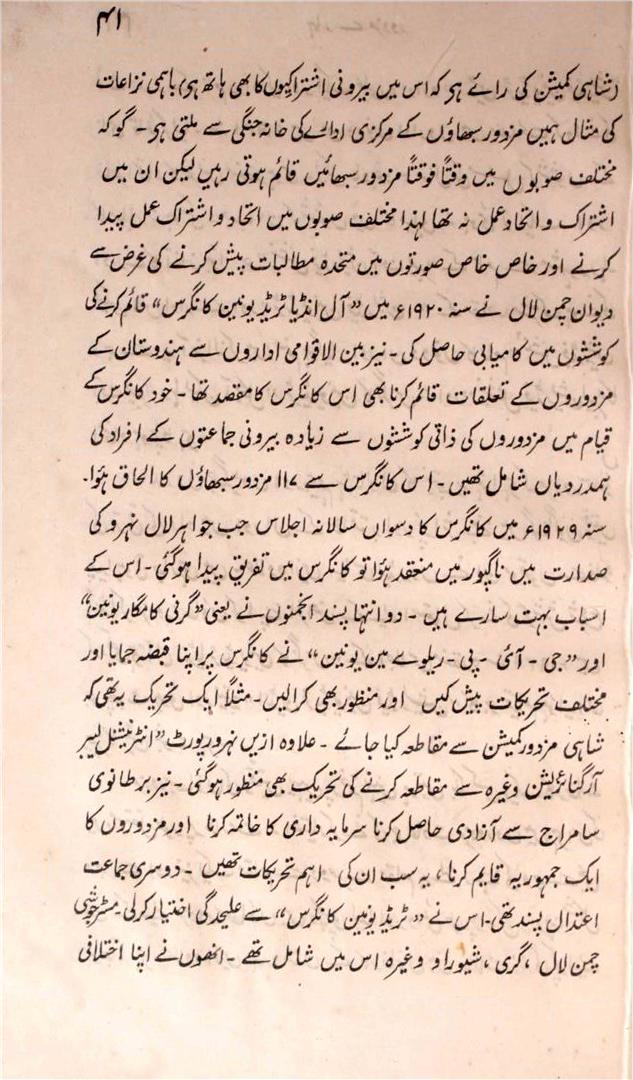 ۴۱
(شاہی کمیشن کی رائے ہو کہ اس میں بیرونی اشتراکیوں کا بھی ہاتھ ہو) باہمی نزاعات
کی مثال ہمیں مزدور سبھاؤں کے مرکزی ادارے کی خانہ جنگی سے ملتی ہو ۔ گو کہ
مختلف صوبوں میں وقتاً فوقتاً مزدور سبھائیں قائم ہوتی رہیں لیکن ان میں
اشتراک و اتحاد عمل نہ تھا لہٰذا مختلف صوبوں میں اتحاد و اشتراک عمل پیدا
کرنے اور خاص خاص صورتوں میں متحدہ مطالبات پیش کرنے کی غرض سے
دیوان چمن لال نے سنہ ۱۹۲۰ء میں ”آل انڈیا ٹریڈ یونین کانگرس“ قائم کرنے کی
کوششوں میں کامیابی حاصل کی ۔ نیز بین الاقوامی اداروں سے ہندوستان کے
مزدوروں کے تعلقات قائم کرنا بھی اس کانگرس کا مقصد تھا ۔ خود کانگرس کے
قیام میں مزدوروں کی ذاتی کوششوں سے زیادہ بیرونی جماعتوں کے افراد کی
ہمدردیاں شامل تھیں ۔ اس کانگرس سے ۱۱۷ مزدور سبھاؤں کا الحاق ہؤا۔
سنہ ۱۹۲۹ء میں کانگرس کا دسواں سالانہ اجلاس جب جواہر لال نہرو کی
صدارت میں ناگپور میں منعقد ہؤا تو کانگرس میں تفریق پیدا ہوگئی ۔ اس کے
اسباب بہت سارے ہیں ۔ دو انتہا پسند انجمنوں نے یعنی ”گرنی کامگار یونین“
اور ”جی ۔ آئی ۔ پی ۔ ریلوے مین یونین“ نے کانگرس پر اپنا قبضہ جمایا اور
مختلف تحریکات پیش کیں اور منظور بھی کرالیں ۔ مثلاً ایک تحریک یہ تھی کہ
شاہی مزدور کمیشن سے مقاطعہ کیا جائے ۔ علاوہ ازیں نہرو رپورٹ ”انٹرنیشنل لیبر
آرگنائزیشن وغیرہ سے مقاطعہ کرنے کی تحریک بھی منظور ہوگئی ۔ نیز برطانوی
سامراج سے آزادی حاصل کرنا سرمایہ داری کا خاتمہ کرنا اور مزدوروں کا
ایک جمہوریہ قایم کرنا ، یہ سب ان کی اہم تحریکات تھیں ۔ دوسری جماعت
اعتدال پسند تھی ۔ اس نے ”ٹریڈ یونین کانگرس“ سے علیحدگی اختیار کرلی ۔ مسٹر جوشی
چمن لال ، گری ، شیوراو وغیرہ اس میں شامل تھے ۔ انھوں نے اپنا اختلافی